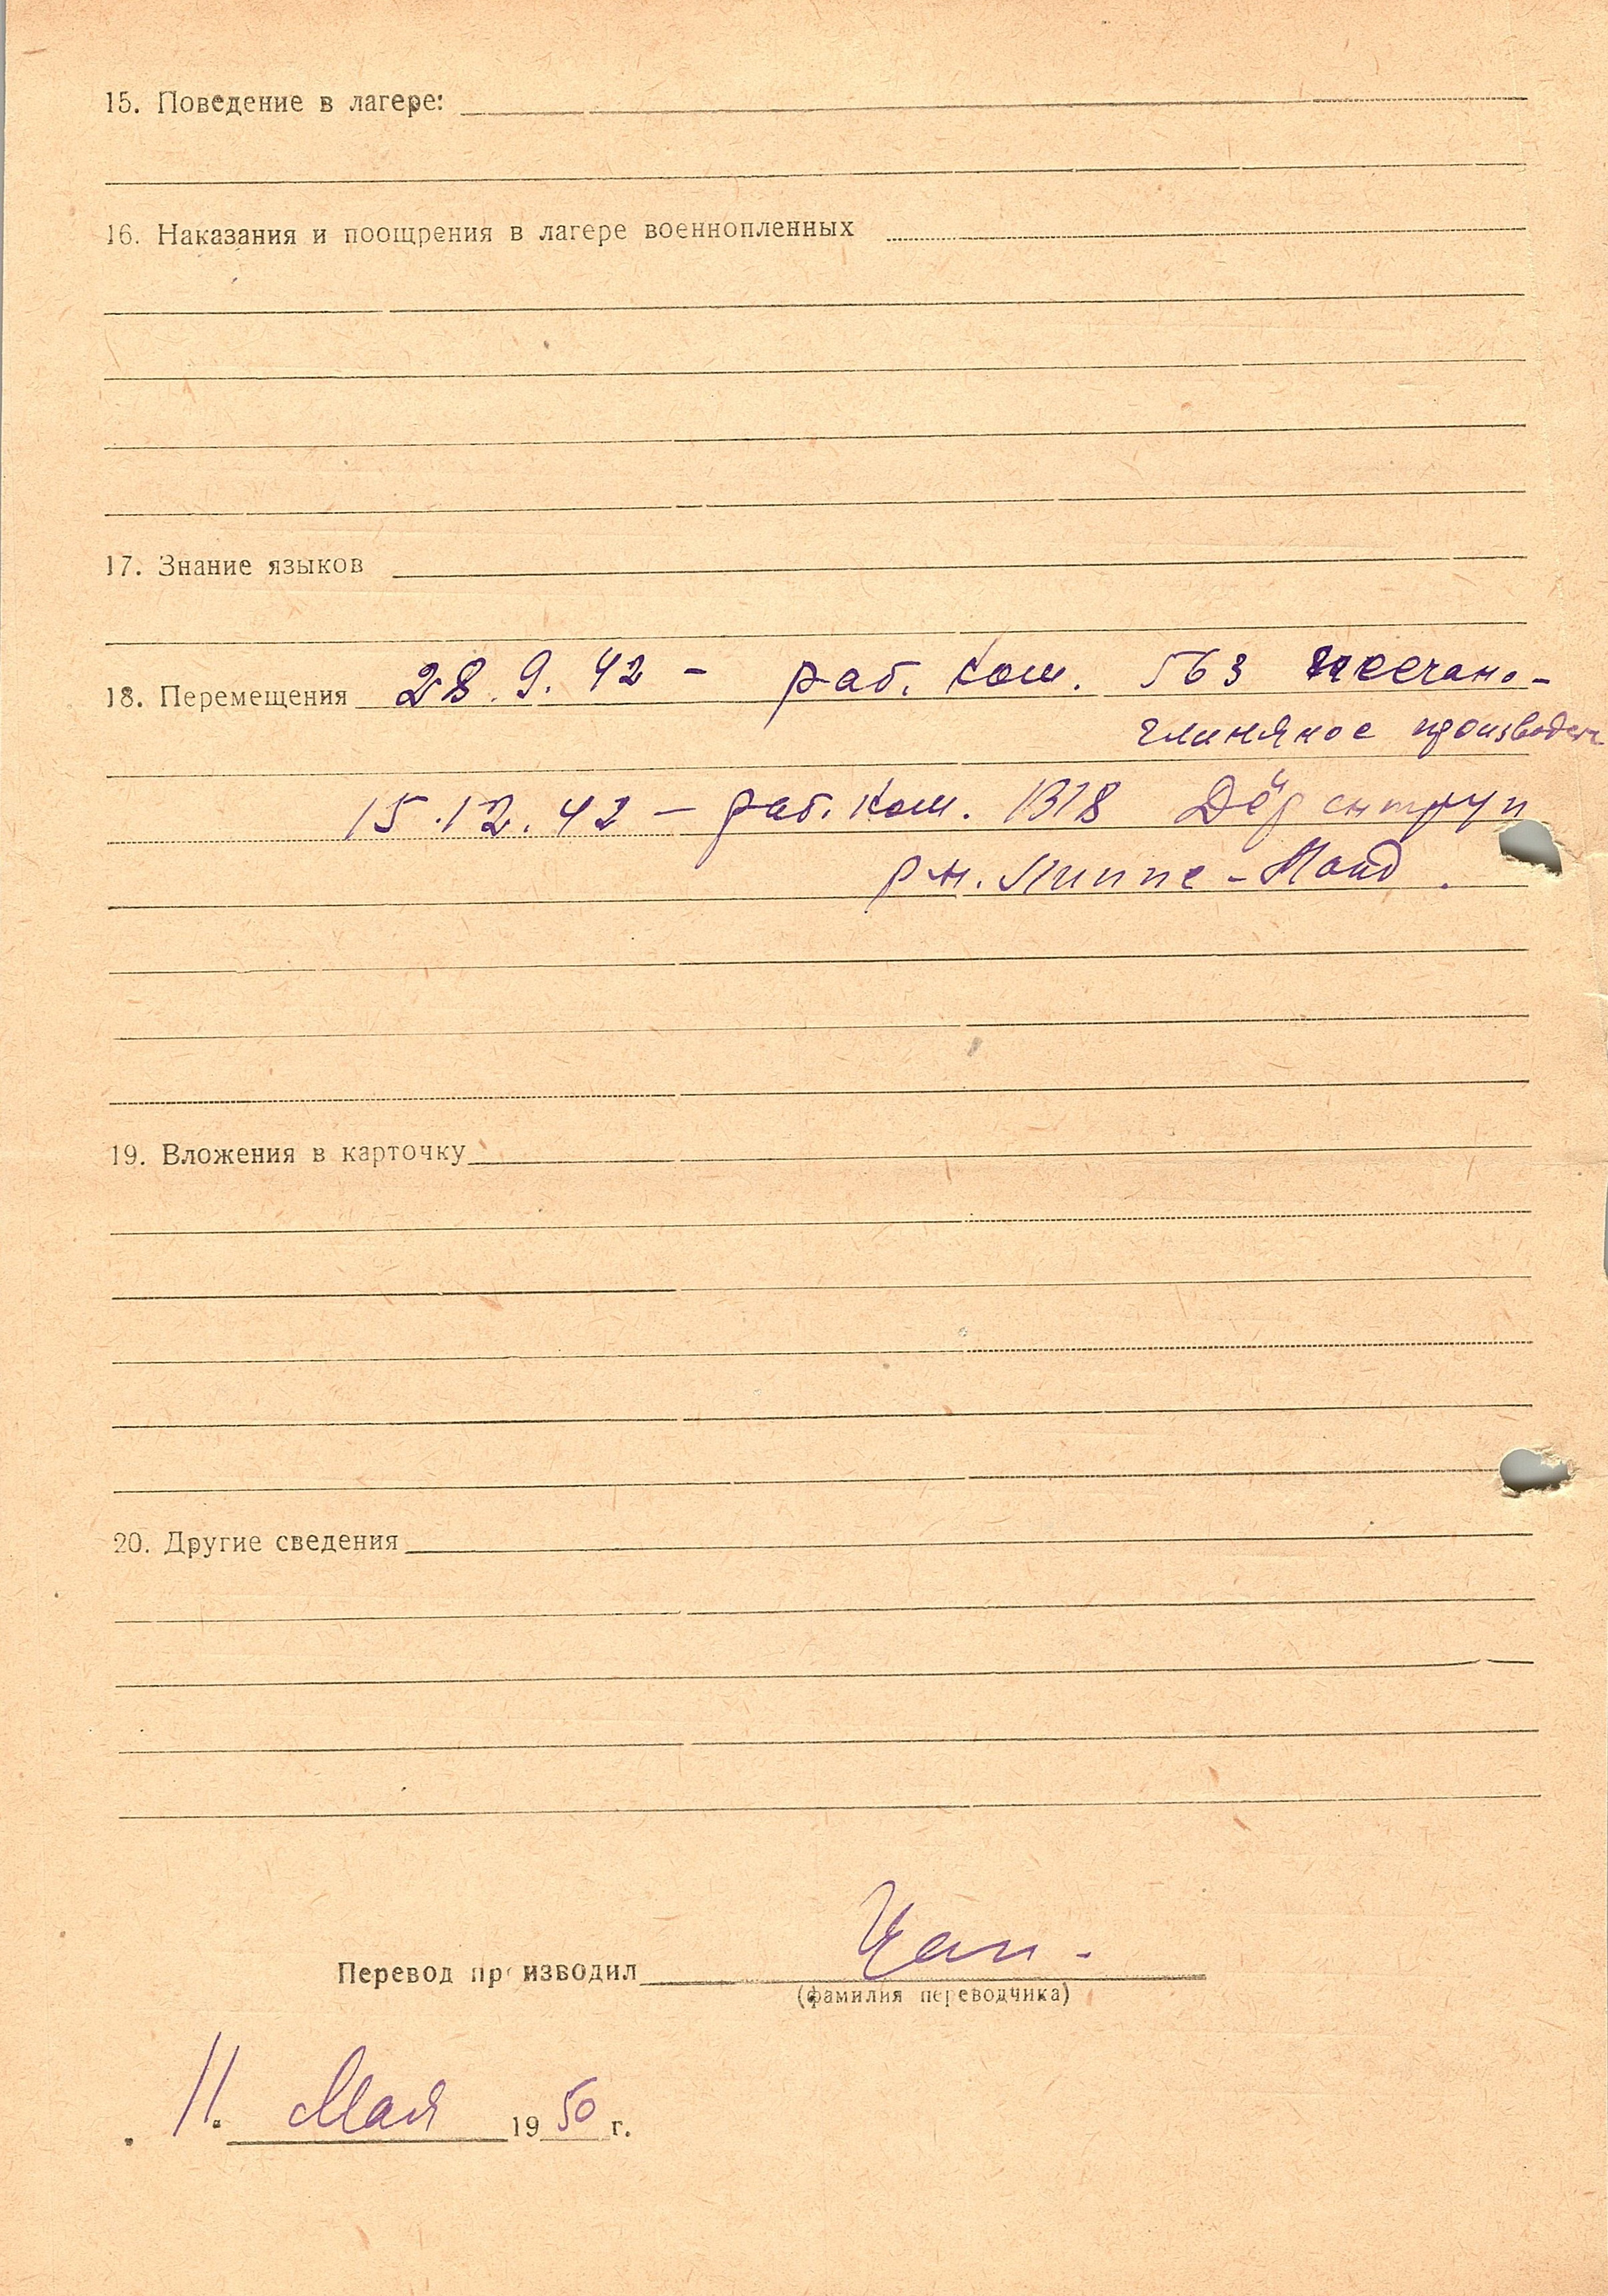 15. Поведение в лагере:
16. Наказания и поощрения в лагере военнопленных
17. Знание языков
18. Перемещения 28.9.42 - раб. Ком. 563 песчано-
глиняное производств
15.12.42 - раб. Ком. 1318 Дёрентруп
р-н. Липпе-Ланд.
19. Вложения в карточку
20. Другие сведения
Перевод производил
(фамилия переводчика)
11. Мая 1950 г.